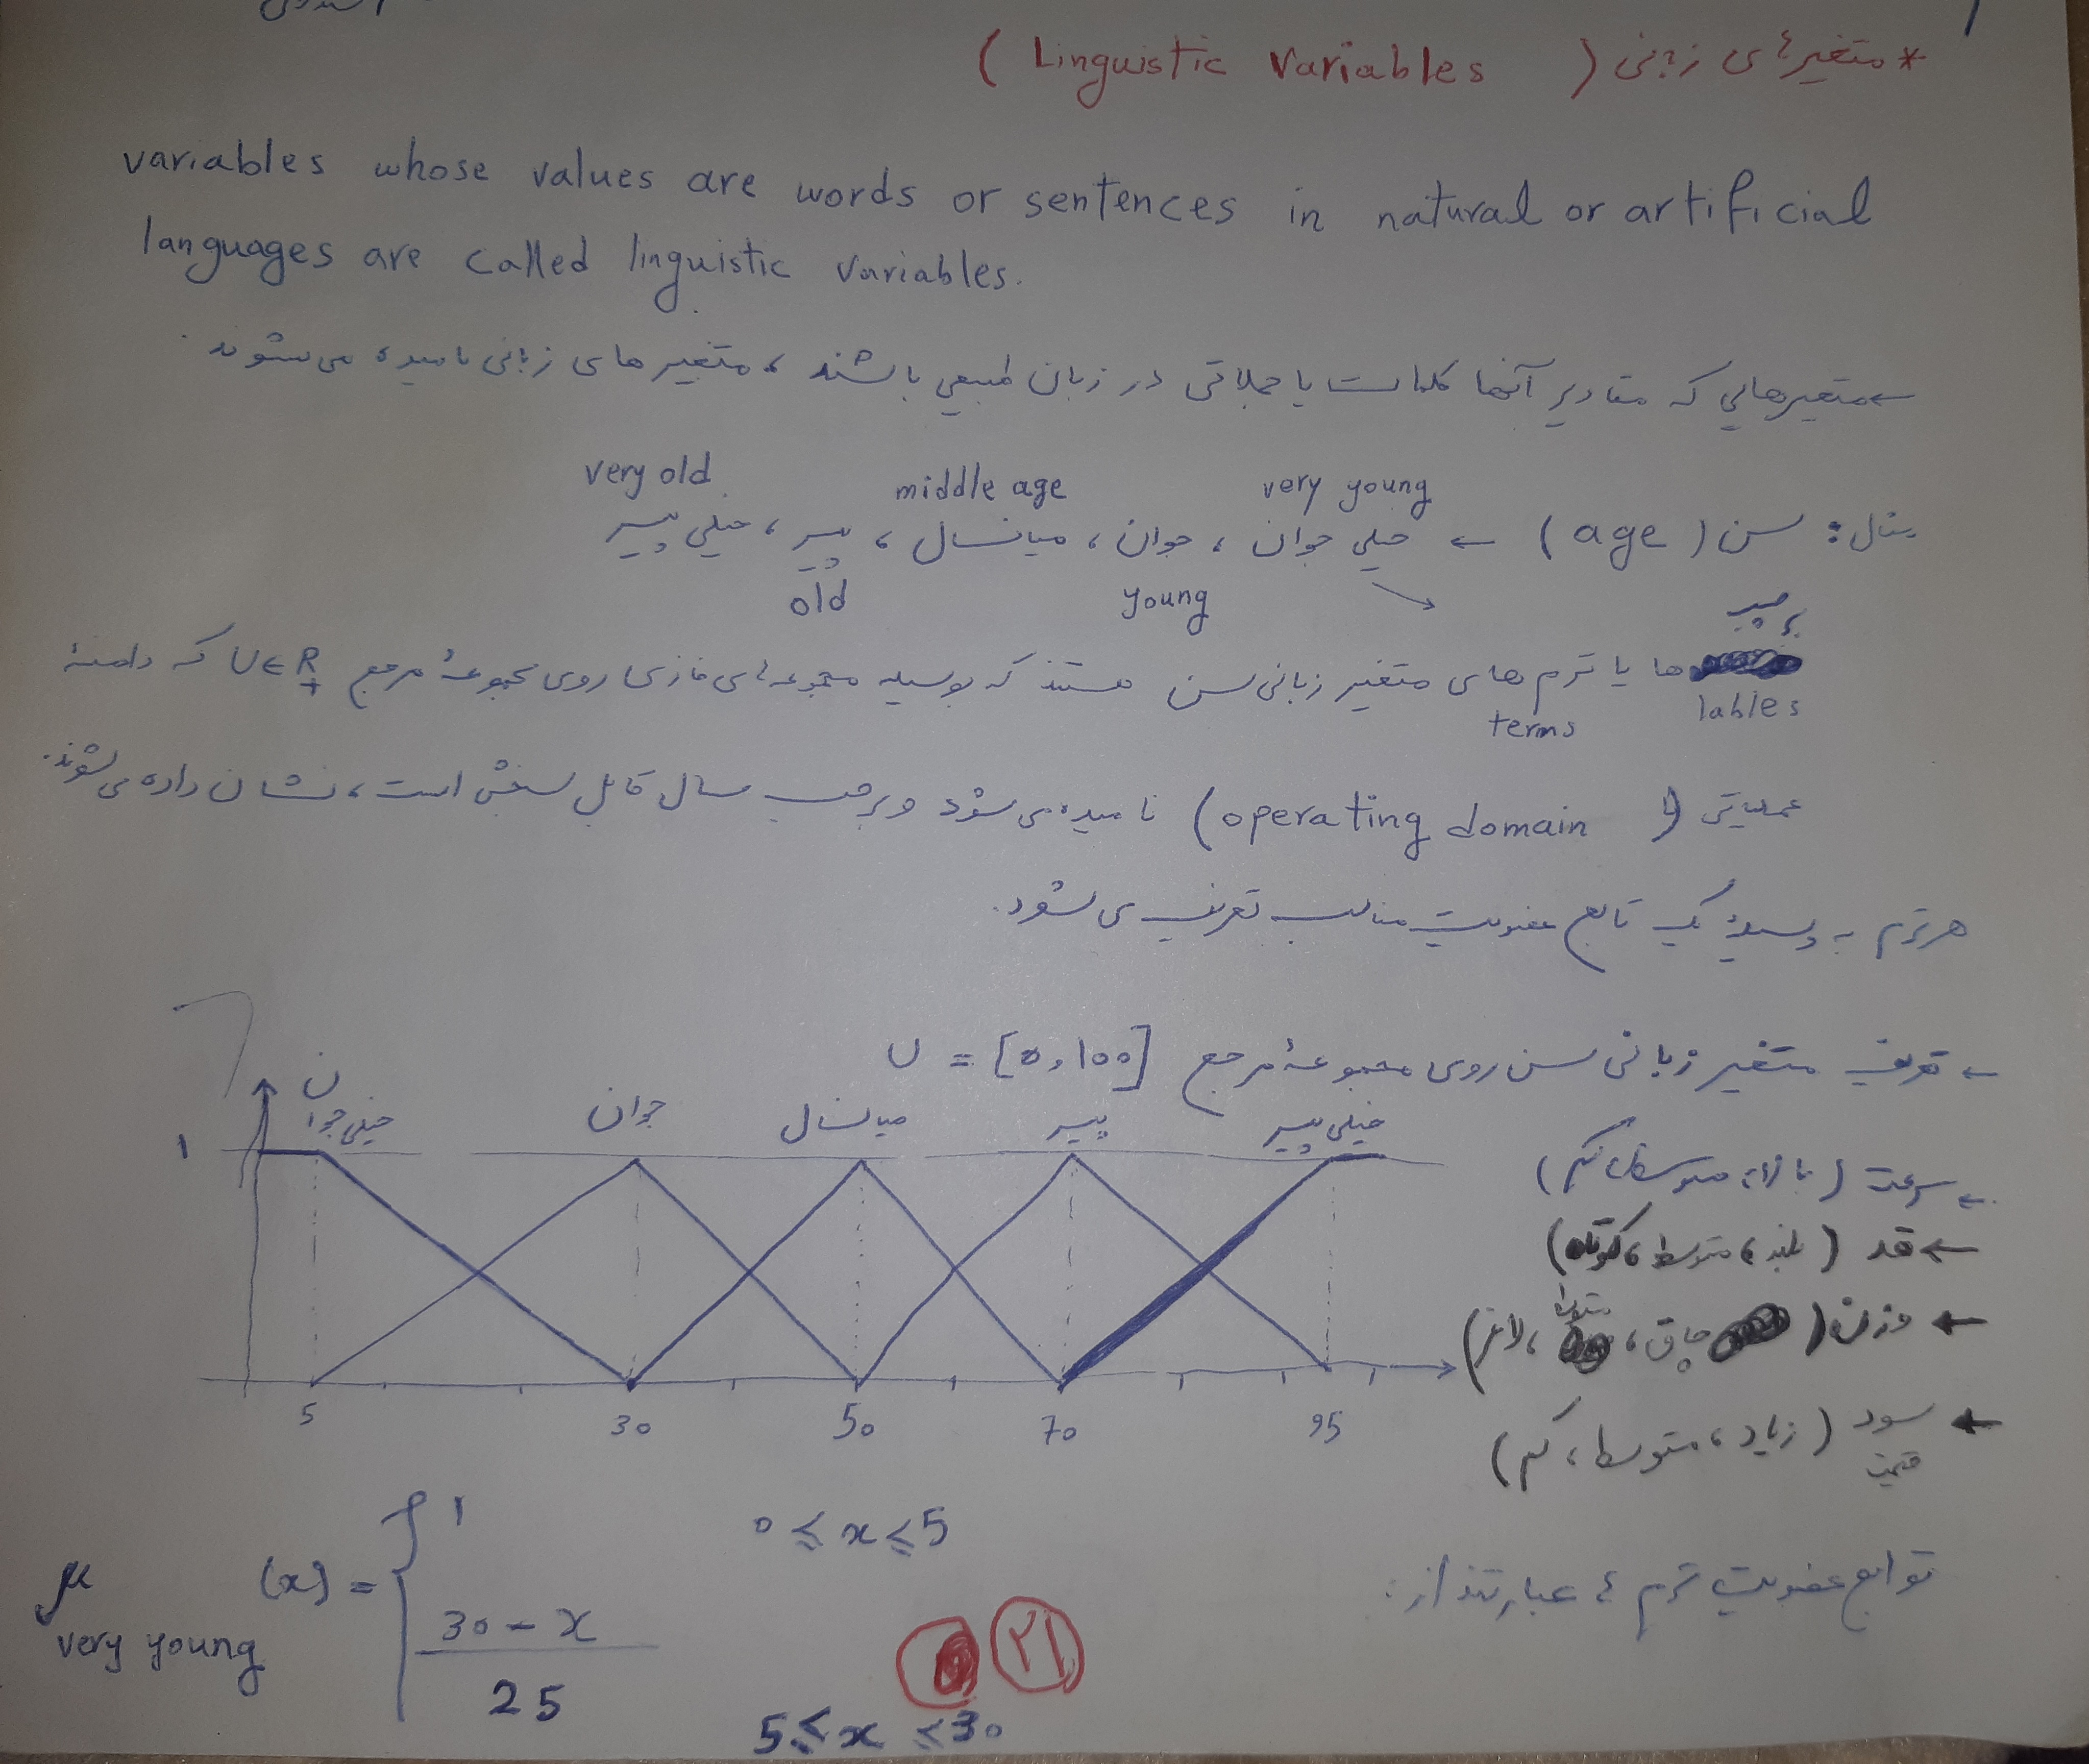 * متغیرهای زبانی ( Linguistic Variables )
variables whose values are words or sentences in natural or artificial
languages are called linguistic variables.
← متغیرهایی که مقادیر آنها کلمات یا جملاتی در زبان طبیعی باشند، متغیرهای زبانی نامیده می‌شوند.
very old middle age very young
مثال: سن (age) ← خیلی جوان، جوان، میانسال، پیر، خیلی پیر
old young
برچسب
ها یا ترم های متغیر زبانی سن هستند که بوسیله مجموعه‌های فازی روی مجموعهٔ مرجع U∈R+ که دامنهٔ
terms lables
عملیاتی (operating domain) نامیده می‌شود و برحسب سال قابل سنجش است، نشان داده می‌شوند.
هر ترم به وسیلهٔ یک تابع عضویت مناسب تعریف می‌شود.
← تعریف متغیر زبانی سن روی مجموعهٔ مرجع U = [0,100]
خیلی جوان جوان میانسال پیر خیلی پیر
1
← سرعت (بالا، متوسط، کم)
← قد (بلند، متوسط، کوتاه)
← وزن (چاق، متوسط، لاغر)
5 30 50 70 95
← سود (زیاد، متوسط، کم)
قیمت
توابع عضویت ترم ها عبارتند از:
μ very young (x) = { 1 0 ≤ x ≤ 5
30 - x
25
5 ≤ x ≤ 30
۲۱